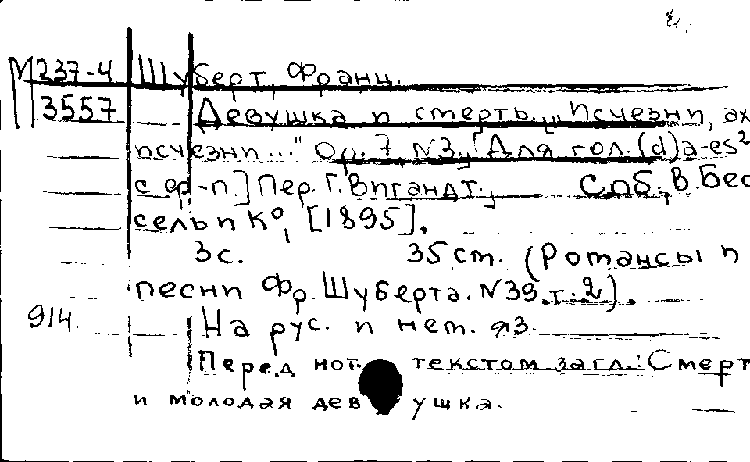 М237-4 Шуберт, Франц.
3557 Девушка и смерть. „Исчезни, ах
исчезни..." Ор. 7, N3. [Для гол. (d)a-es²
с ф-п.] Пер. Г. Вигандт. Спб., В. Бес
сель и К°, [1895].
3с. 35 см. (Романсы и
песни Фр. Шуберта. N39. т. 2).
914 На рус. и нем. яз.
Перед нот. текстом загл.: Смерт
и молодая девушка.